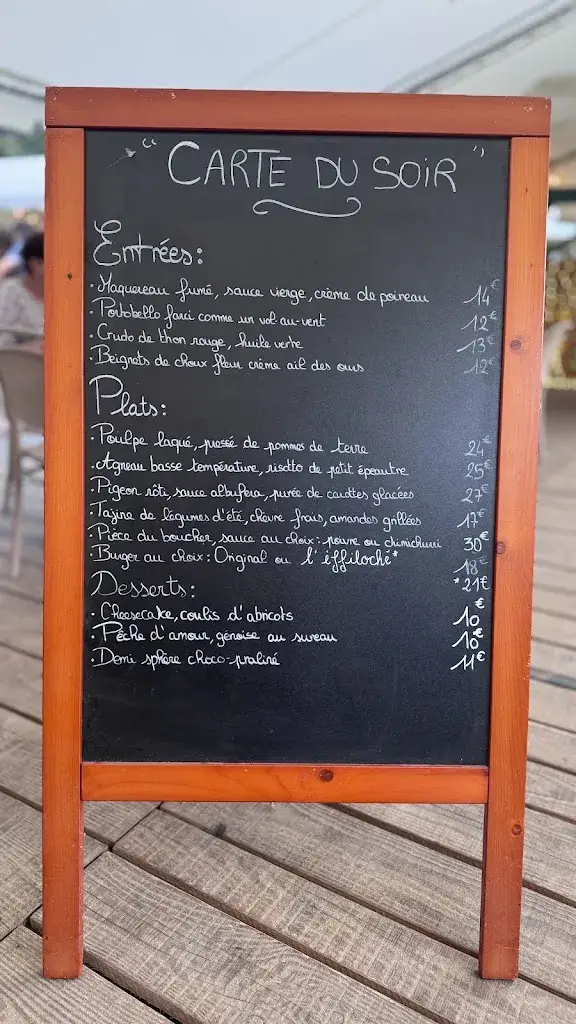 " CARTE DU SOIR "
Entrées:
· Maquereau fumé, sauce vierge, crème de poireau 14€
· Portobello farci comme un vol-au-vent 12€
· Crudo de thon rouge, huile verte 13€
· Beignets de choux fleur crème ail des ours 12€
Plats:
· Poulpe laqué, pressé de pommes de terre 24€
· Agneau basse température, risotto de petit épeautre 25€
· Pigeon rôti, sauce albufera, purée de carottes glacées 27€
· Tajine de légumes d'été, chèvre frais, amandes grillées 17€
· Pièce du boucher, sauce au choix: poivre ou chimichurri 30€
· Burger au choix: Original ou l'éffiloché* 18€
*21€
Desserts:
· Cheesecake, coulis d'abricots 10€
· Pêche d'amour, génoise au sureau 10€
· Demi sphère choco-praliné 11€